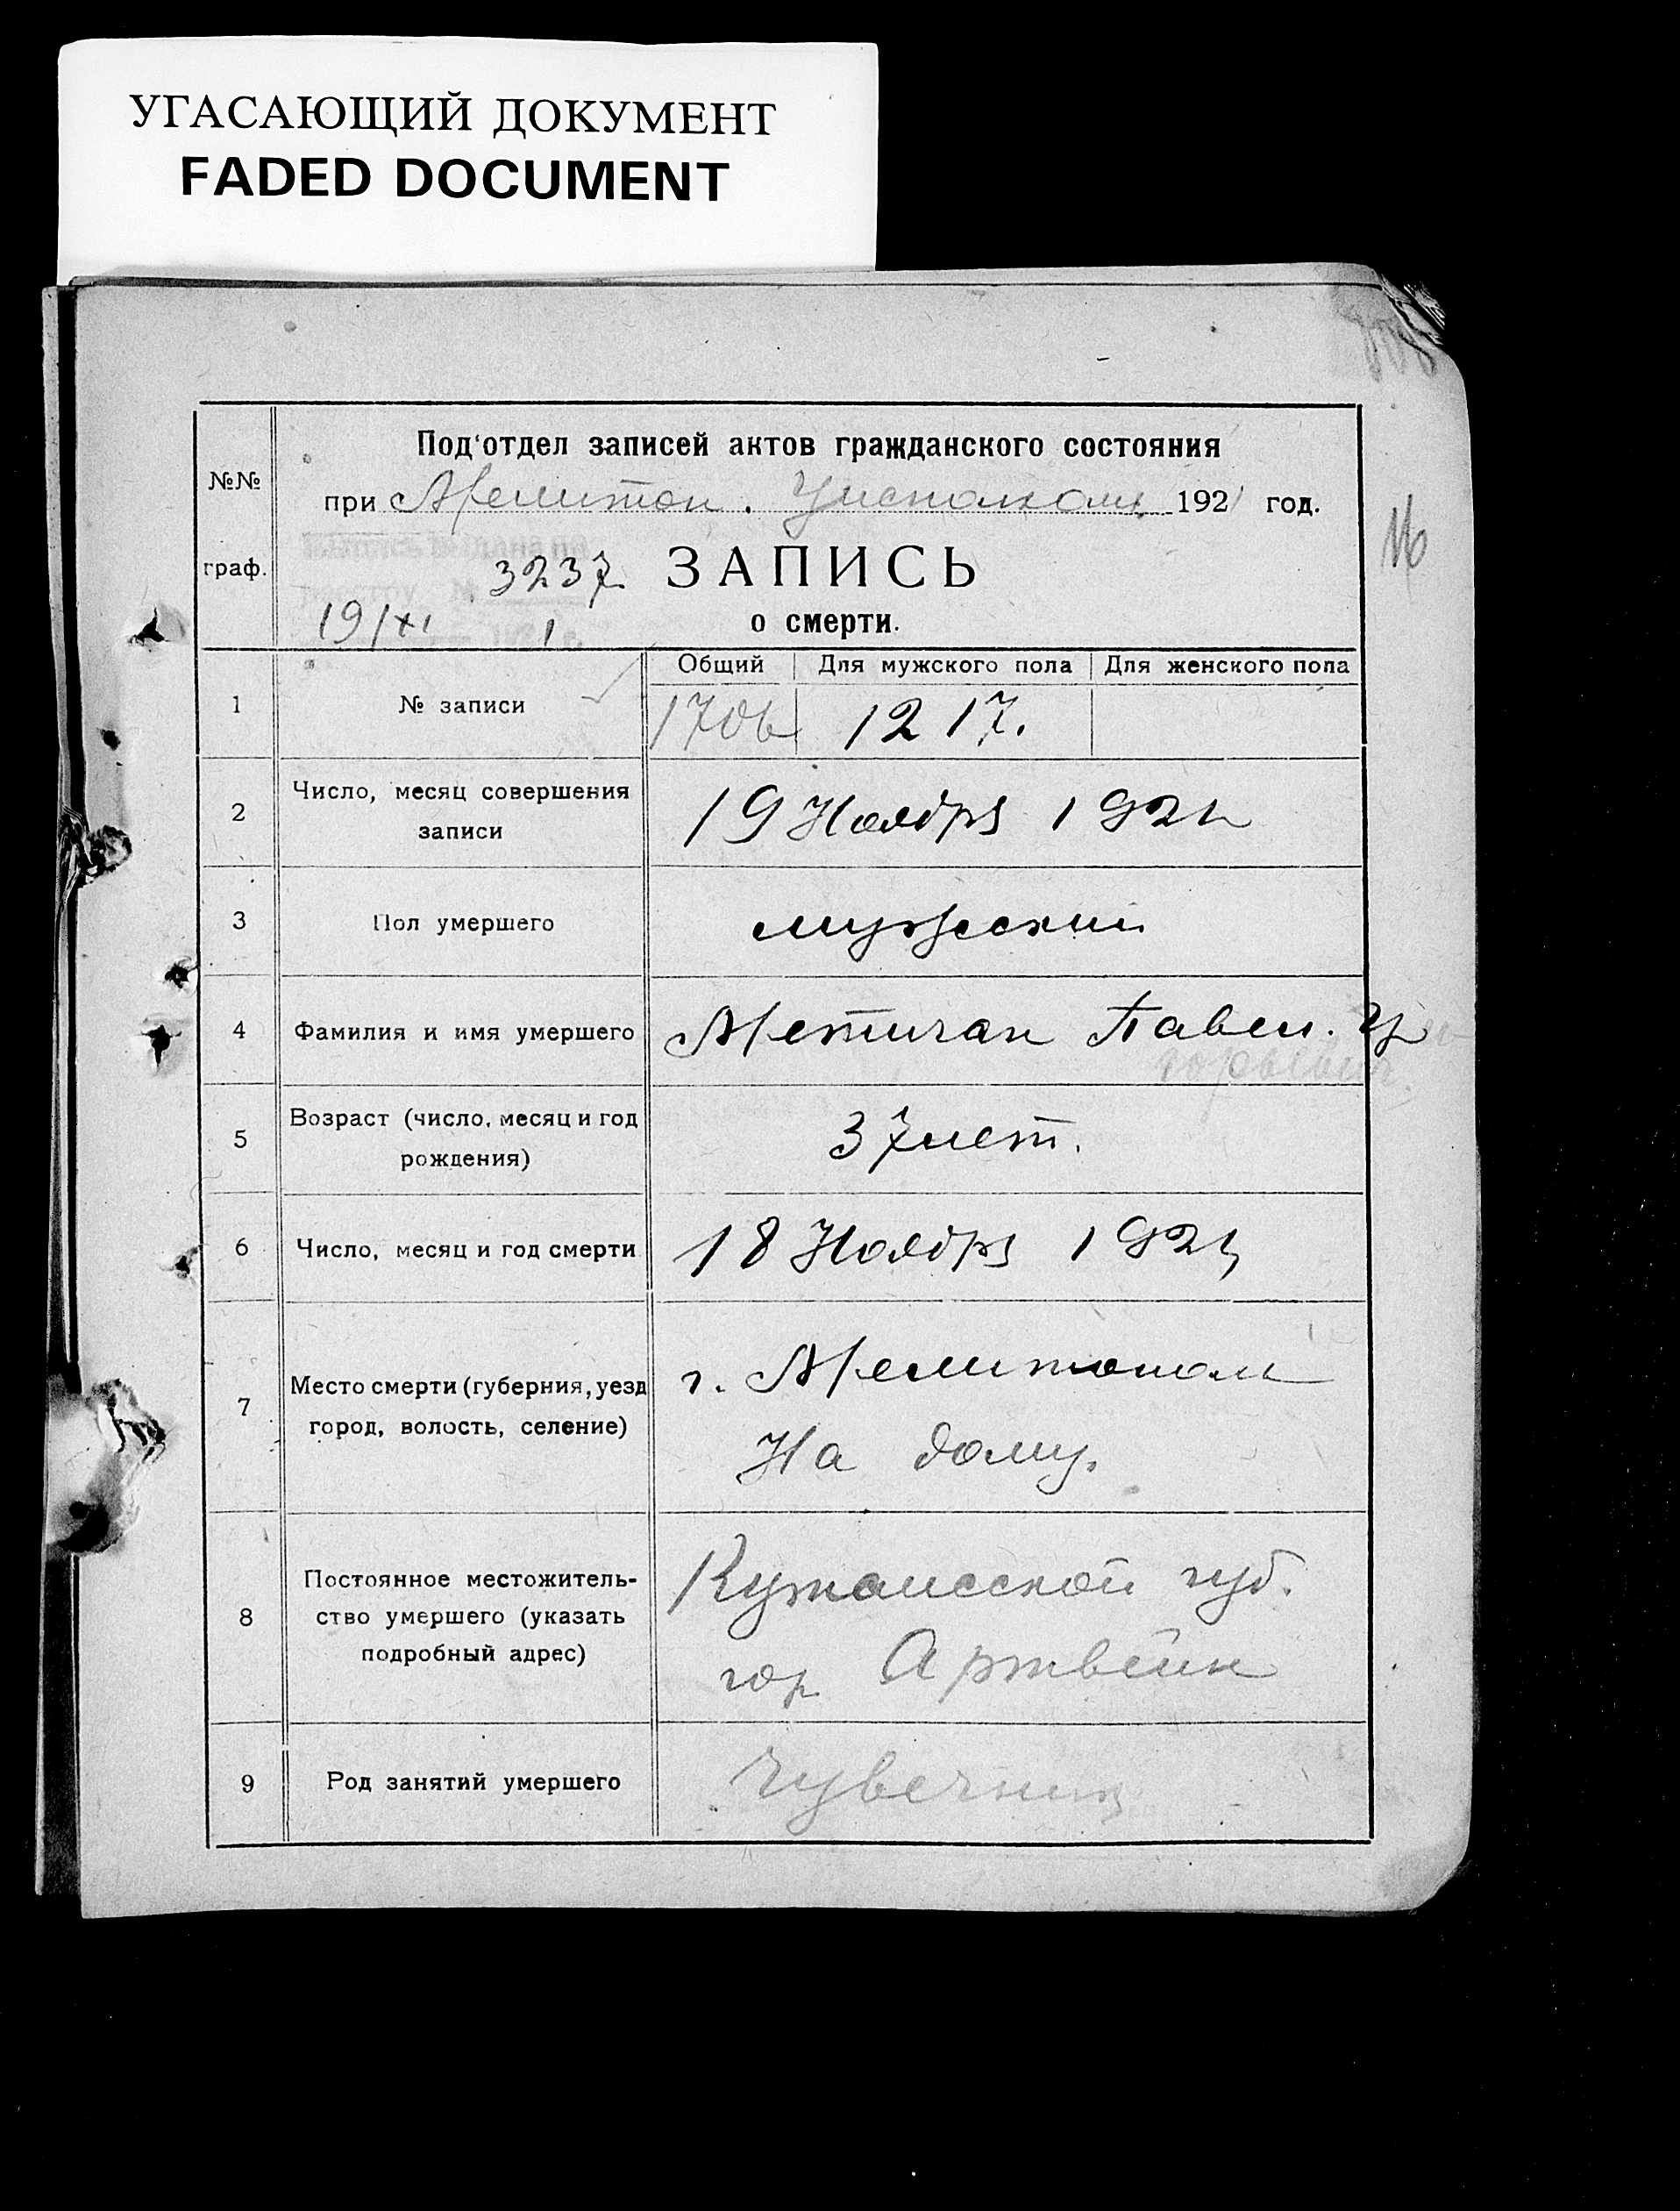 УГАСАЮЩИЙ ДОКУМЕНТ
FADED DOCUMENT
№№
граф.
Под'отдел записей актов гражданского состояния
при Мелитоп. Уисполком 1921 год.
3237 ЗАПИСЬ
19/XI 1 о смерти.
16
Общий Для мужского пола Для женского пола
1 № записи 1706 1217.
2 Число, месяц совершения
записи
19 Ноября 1921
3 Пол умершего мужеский
4 Фамилия и имя умершего Метичан Павел.
5 Возраст (число, месяц и год
рождения)
37 лет.
6 Число, месяц и год смерти 18 Ноября 1921
7 Место смерти (губерния, уезд
город, волость, селение)
г. Мелитополь
На дому.
8 Постоянное местожитель-
ство умершего (указать
подробный адрес)
Кутаисской губ.
гор Артвин
9 Род занятий умершего